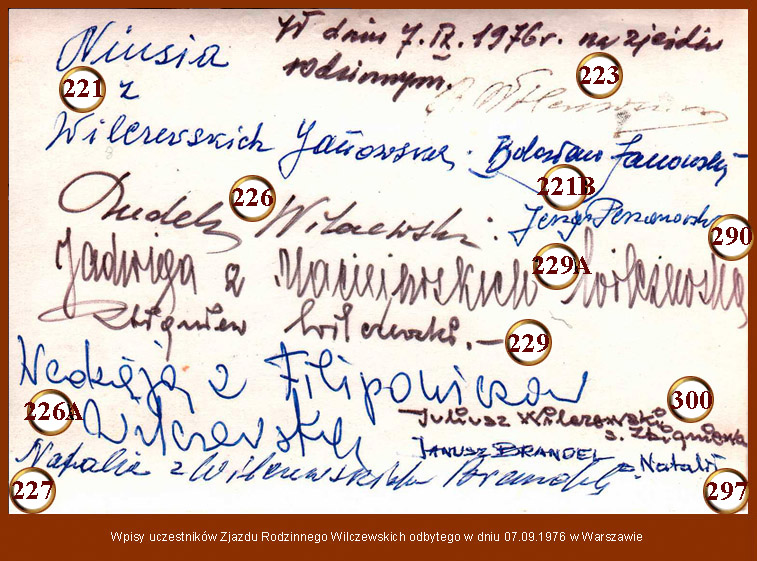 W dniu 7.IX.1976r. na zjeździe
rodzinnym.
Niusia
221
z
223
Wilczewskich Janowska. Bolesław Janowski
226
221B
Dudek Wilczewski.
Jerzy
290
229A
Jadwiga z Maciejewskich Wilczewska
Zbigniew Wilczewski.–
229
Nadzieja z Filipowiczów
300
226A
Wilczewska
Juliusz Wilczewski
s. Zbigniewa
JANUSZ BRANDEL
s. Natalii
Natalia z Wilczewskich Brandel
227
297
Wpisy uczestników Zjazdu Rodzinnego Wilczewskich odbytego w dniu 07.09.1976 w Warszawie